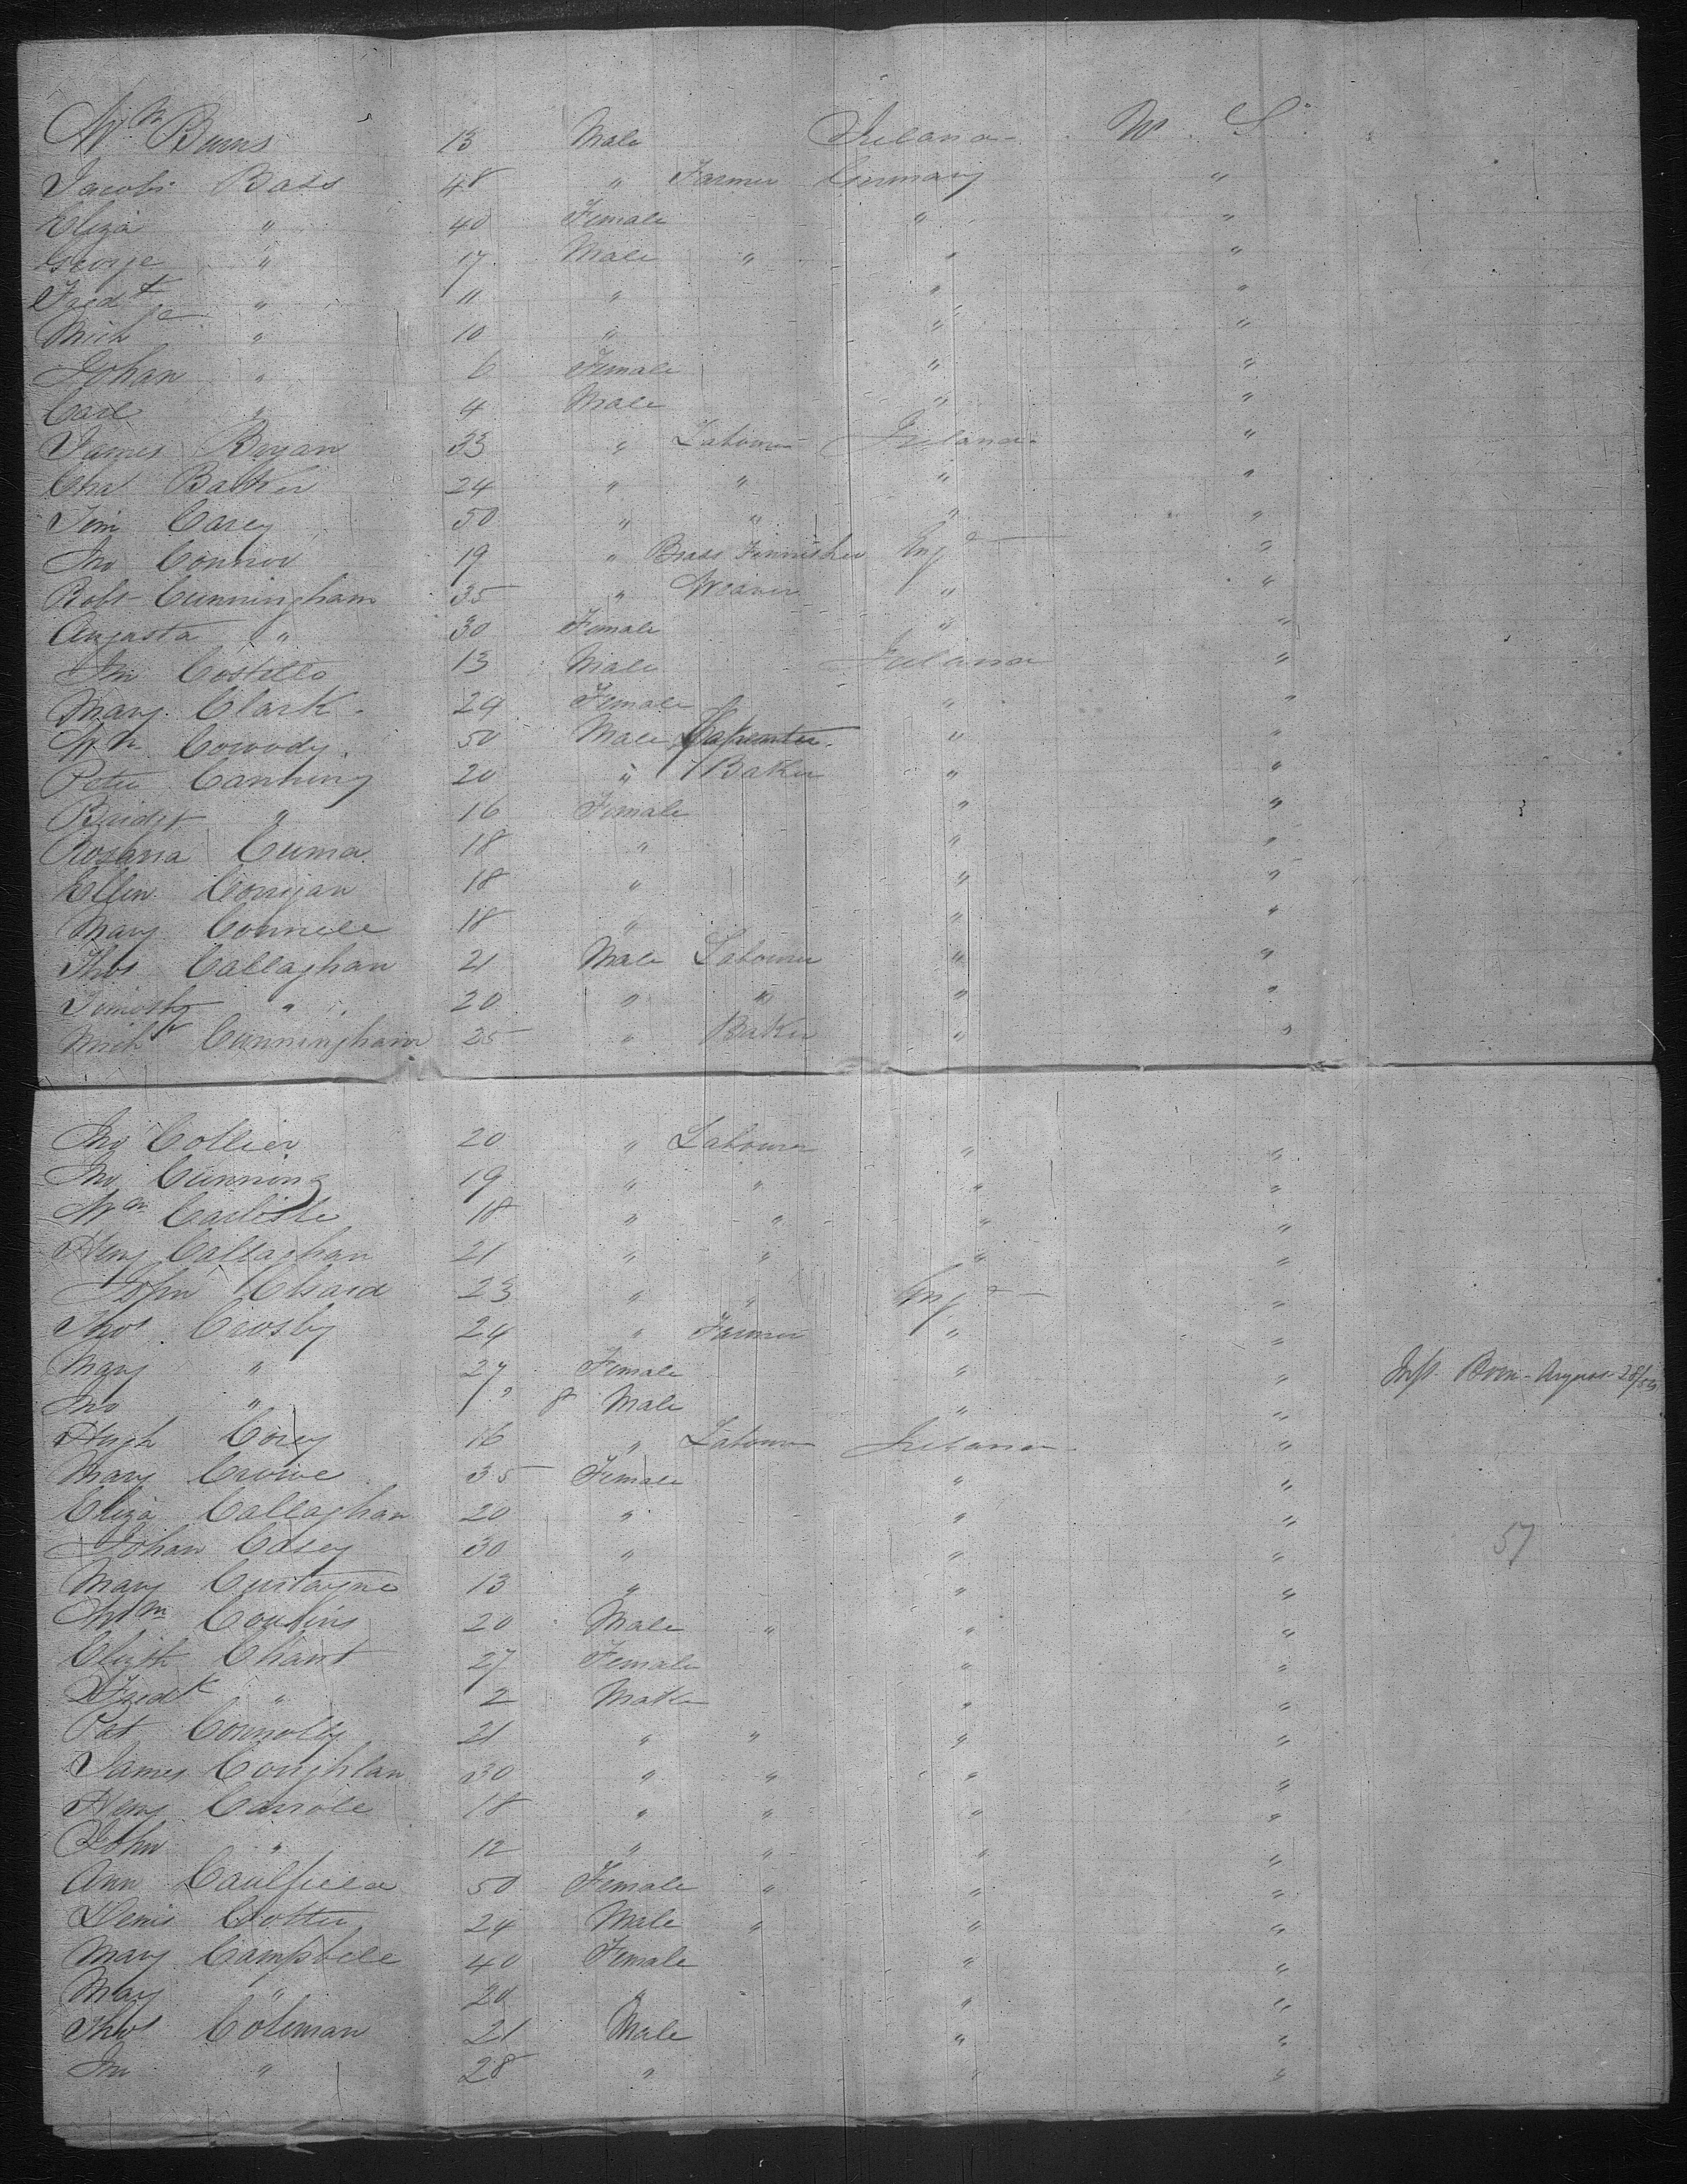 Wm Burns 13 Male Ireland U. S.
Jacob Bass 48 " Farmer Germany "
Eliza " 40 Female " "
George " 17 Male " " "
Fredk " 11 " " "
Mich " 10 " " "
Johan " 6 Female " "
Carl " 4 Male " "
James Bryan 33 " Labourer Ireland "
Chs Barker 24 " " " "
Tim Carey 50 " " " "
Jno Connor 19 " Brass Finnisher Engd "
Robt Cunningham 35 " Weaver " "
Augasta " 30 Female " "
Jno Costello 13 Male Ireland "
Mary Clark 24 Female " "
Wm Cowody 50 Male Carpenter " "
Peter Canning 20 " Baker " "
Bridgt " 16 Female " "
Rosana 18 " " "
Ellen Corrigan 18 " " "
Mary Connell 18 " " "
Thos Callaghan 21 Male Labourer " "
Timothy " 20 " " " "
Michl Cunningham 25 " Baker " "
Jno Collier 20 " Labourer " "
Jno Cunning 19 " " " "
Wm Carlisle 18 " " " "
Heny Callaghan 21 " " " "
John Chard 23 " " Engd "
Thos Crosby 24 " Farmer " "
Mary " 27 Female " "
Jno " 8 Male " " Inft. Born August 28/
Hugh Corey 16 " Labourer Ireland "
Mary Crowe 35 Female " "
Eliza Callaghan 20 " " "
Johan Casey 30 " " " 57
Mary 13 " " "
Wm Coubins 20 Male " " "
Elizth Chant 27 Female " "
Fredk " 2 Male " "
Pat Connolly 21 " " " "
James Coughlan 30 " " " "
Heny Carroll 18 " " " "
John " 12 " " " "
Ann Caulfield 50 Female " " "
Denis Cotter 24 Male " " "
Mary Campbell 40 Female " "
Mary " 20 " " "
Thos Coleman 21 Male " "
Jno " 28 " " "